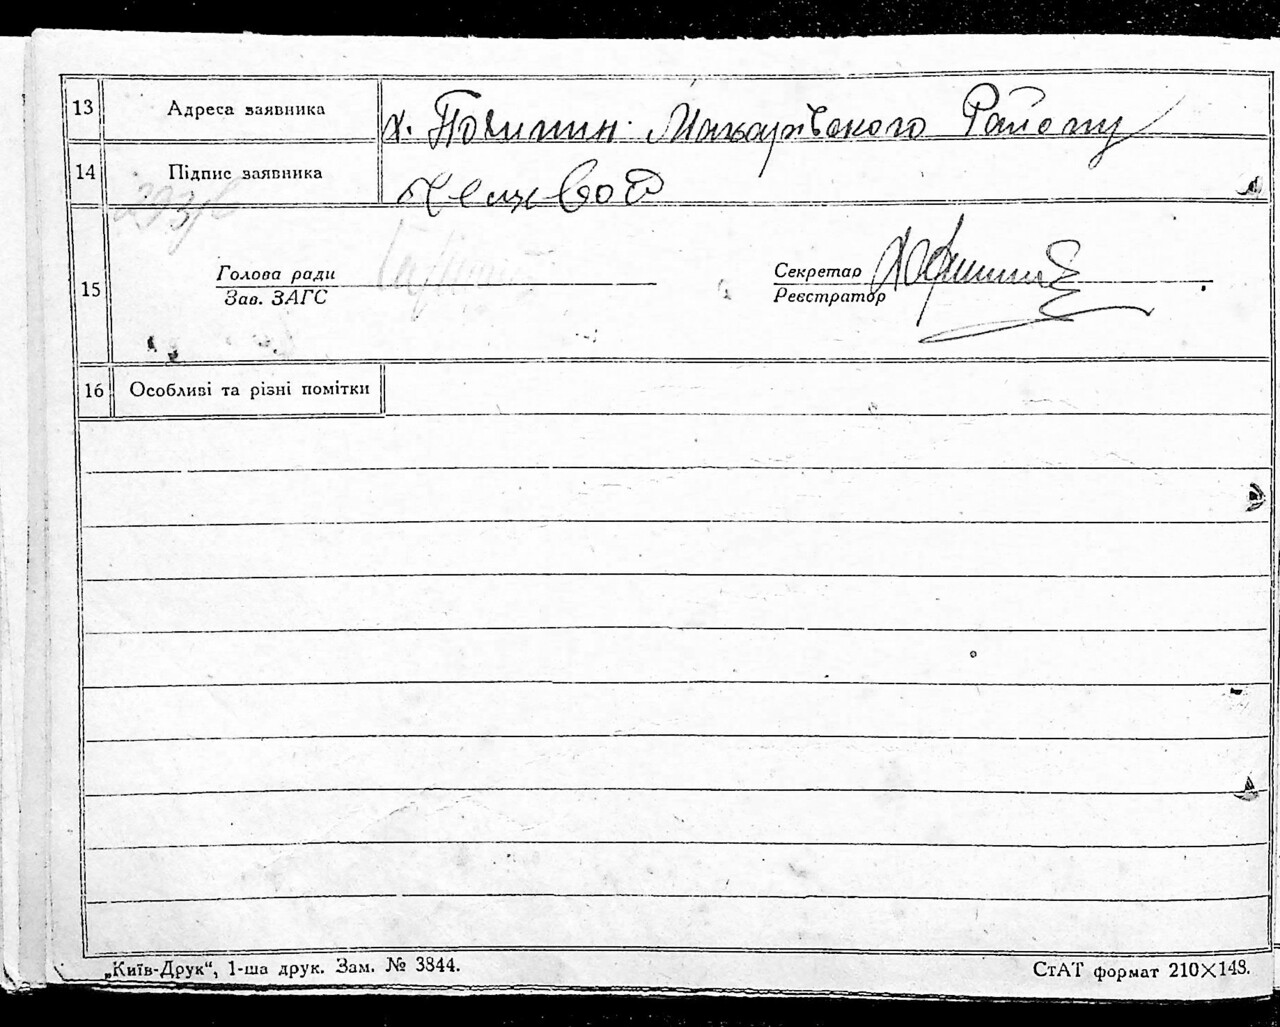 13 Адреса заявника х. Почипин Макарівского Району
14 Підпис заявника
15 Голова ради
Зав. ЗАГС
Секретар
Реєстратор
16 Особливі та різні помітки
„Київ-Друк“, 1-ша друк. Зам. № 3844.
СтАТ формат 210×148.